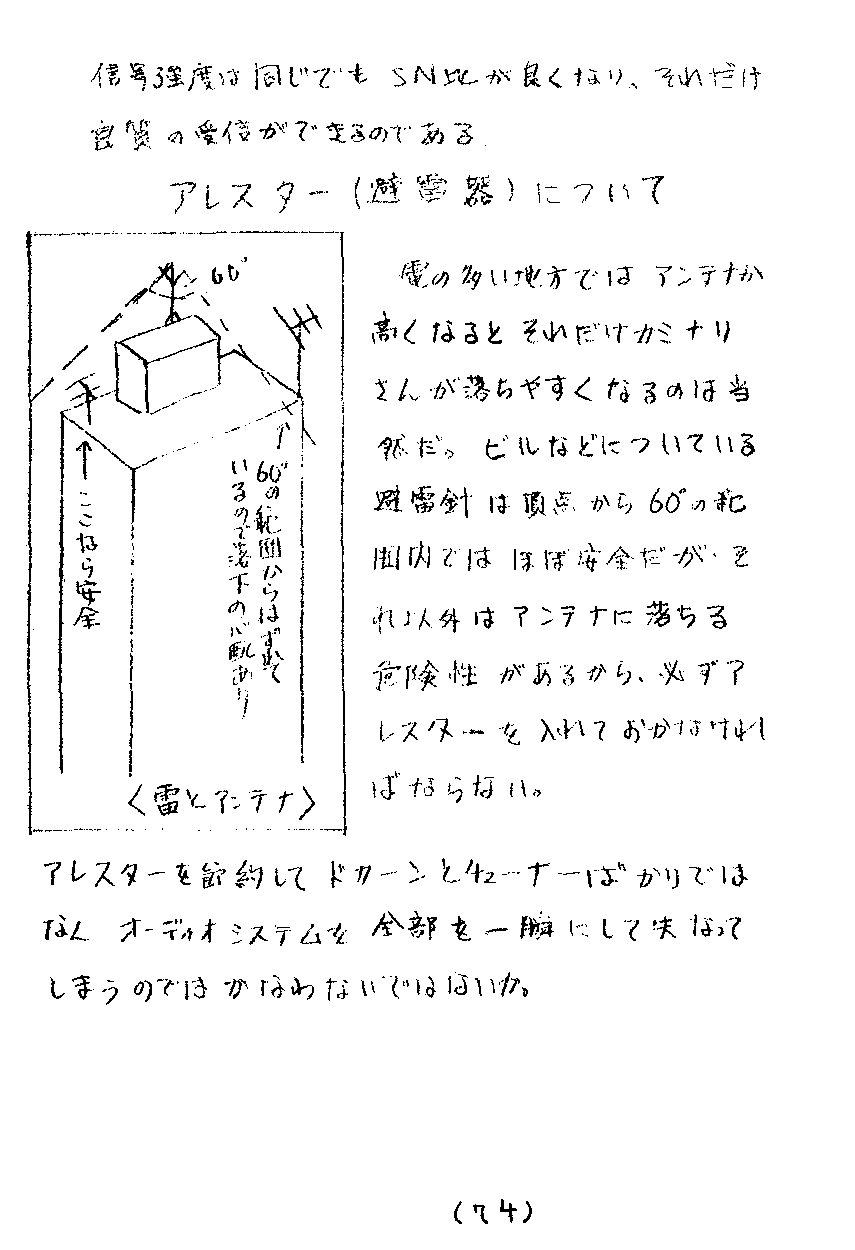 信号強度は同じでも SN比が良くなり、それだけ
良質の受信ができるのである
アレスター(避雷器)について
60°
ここなら安全
60°の範囲からはずれて
いるので落下の心配あり
〈雷とアンテナ〉
雷の多い地方ではアンテナが
高くなるとそれだけカミナリ
さんが落ちやすくなるのは当
然だ。ビルなどについている
避雷針は頂点から60°の範
囲内ではほぼ安全だが、そ
れ以外はアンテナに落ちる
危険性があるから、必ずア
レスターを入れておかなけれ
ばならない。
アレスターを節約してドカーンとチューナーばかりでは
なく オーディオシステムを全部を一瞬にして失なって
しまうのではかなわないではないか。
(74)